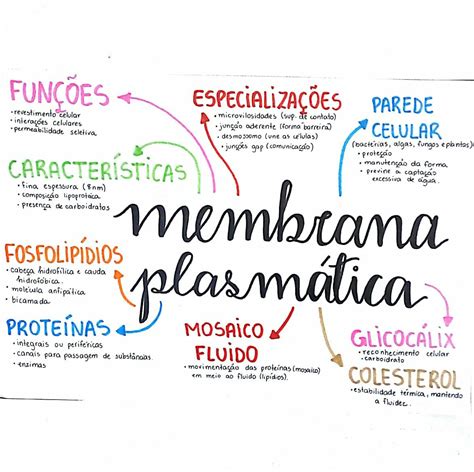 FUNÇÕES
• revestimento celular
• interações celulares
• permeabilidade seletiva
ESPECIALIZAÇÕES
• microvilosidades (sup. de contato)
• junção aderente (forma barreira)
• desmossomo (une as células)
• junções gap (comunicação)
PAREDE
CELULAR
(bactérias, algas, fungos e plantas)
• proteção
• manutenção da forma
• previne a captação
excessiva de água.
CARACTERÍSTICAS
• fina espessura (8nm)
• composição lipoproteica
• presença de carboidratos
membrana
plasmática
FOSFOLIPÍDIOS
• cabeça hidrofílica e cauda
hidrofóbica.
• molécula anfipática
• bicamada
PROTEÍNAS
• integrais ou periféricas
• canais para passagem de substâncias
• enzimas
MOSAICO
FLUIDO
• movimentação das proteínas (mosaico)
em meio ao fluido (lipídios).
GLICOCÁLIX
• reconhecimento celular
• carboidrato
COLESTEROL
• estabilidade térmica, mantendo
a fluidez.